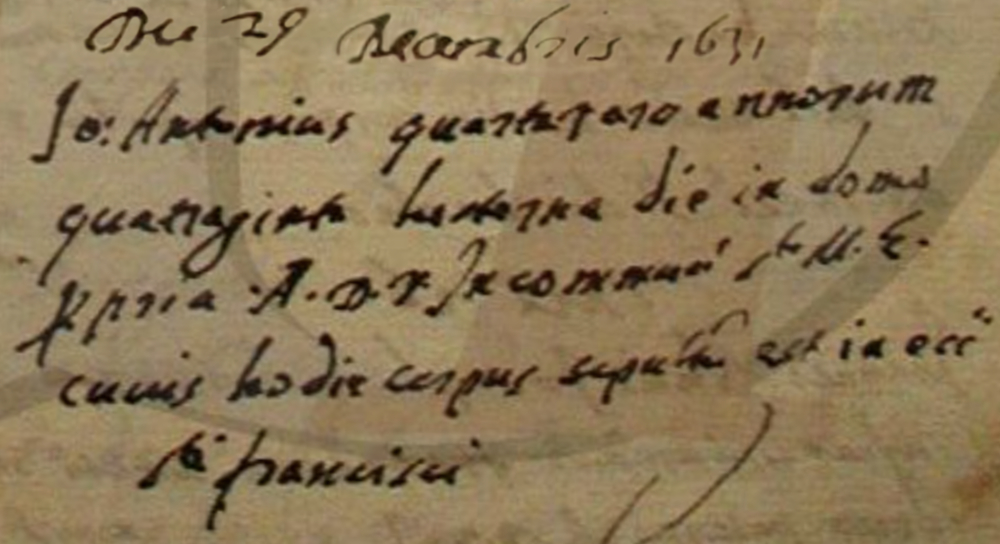 Die 29 Decembris 1631
Jo: Antonius quartararo annorum
quatraginta hesterna die in domo
ppria A. D. R. In commun' sta M. E.
cuius hodie corpus sepultu est in ecca
sti francisci